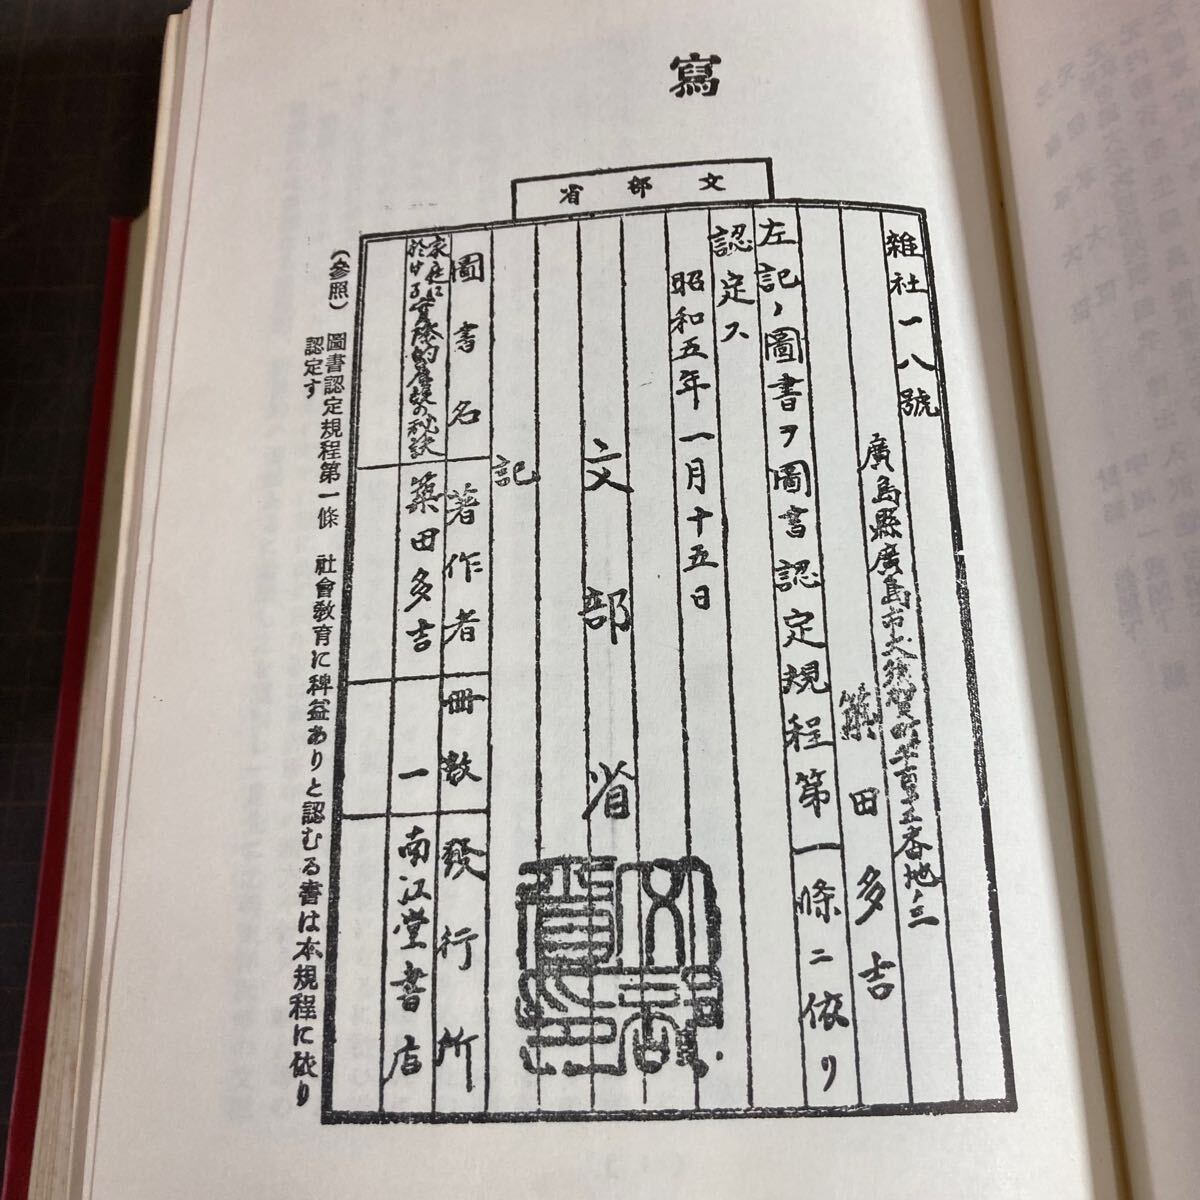 寫
文部省
雑社一八號
廣島縣廣島市大須賀町
番地ノ三
築田多吉
左記ノ圖書ヲ圖書認定規程第一條ニ依リ
認定ス
昭和五年一月十五日
文部省
文部省印
記
圖書名 著作者 冊數 發行所
家庭に
於ける實際的看護の秘訣 築田多吉 一 南江堂書店
(參照) 圖書認定規程第一條 社會敎育に裨益ありと認むる書は本規程に依り
認定す